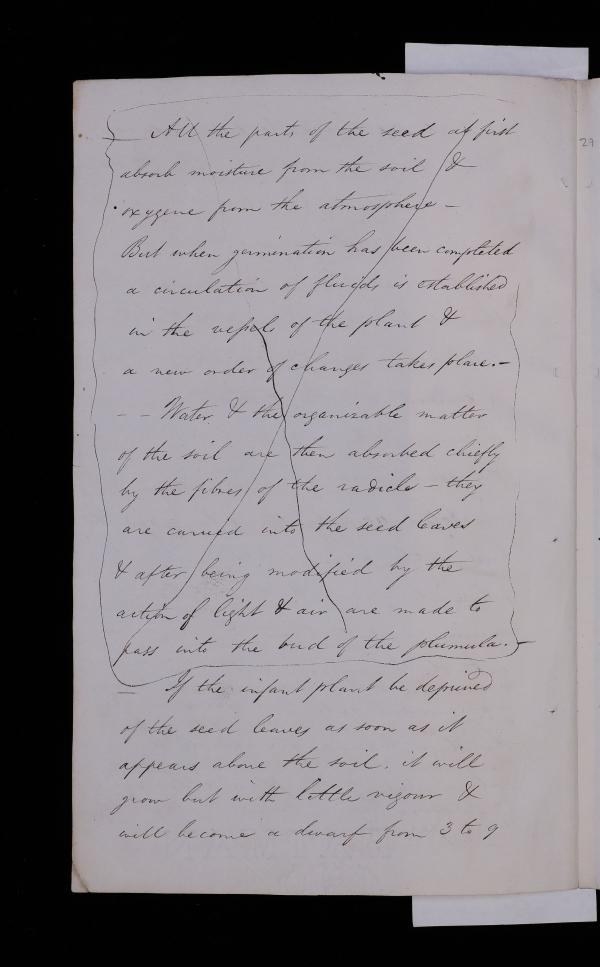 — All the parts of the seed at first
absorb moisture from the soil &
oxygene from the atmosphere –
But when germination has been completed
a circulation of fluids is established
in the vessels of the plant &
a new order of changes takes place. –
– – Water & the organizable matter
of the soil are then absorbed chiefly
by the fibres of the radicle – they
are carried into the seed leaves
& after being modified by the
action of light & air are made to
pass into the bud of the plumula. –
— If the infant plant be deprived
of the seed leaves as soon as it
appears above the soil. it will
grow but with little vigour &
will become a dwarf from 3 to 9
29